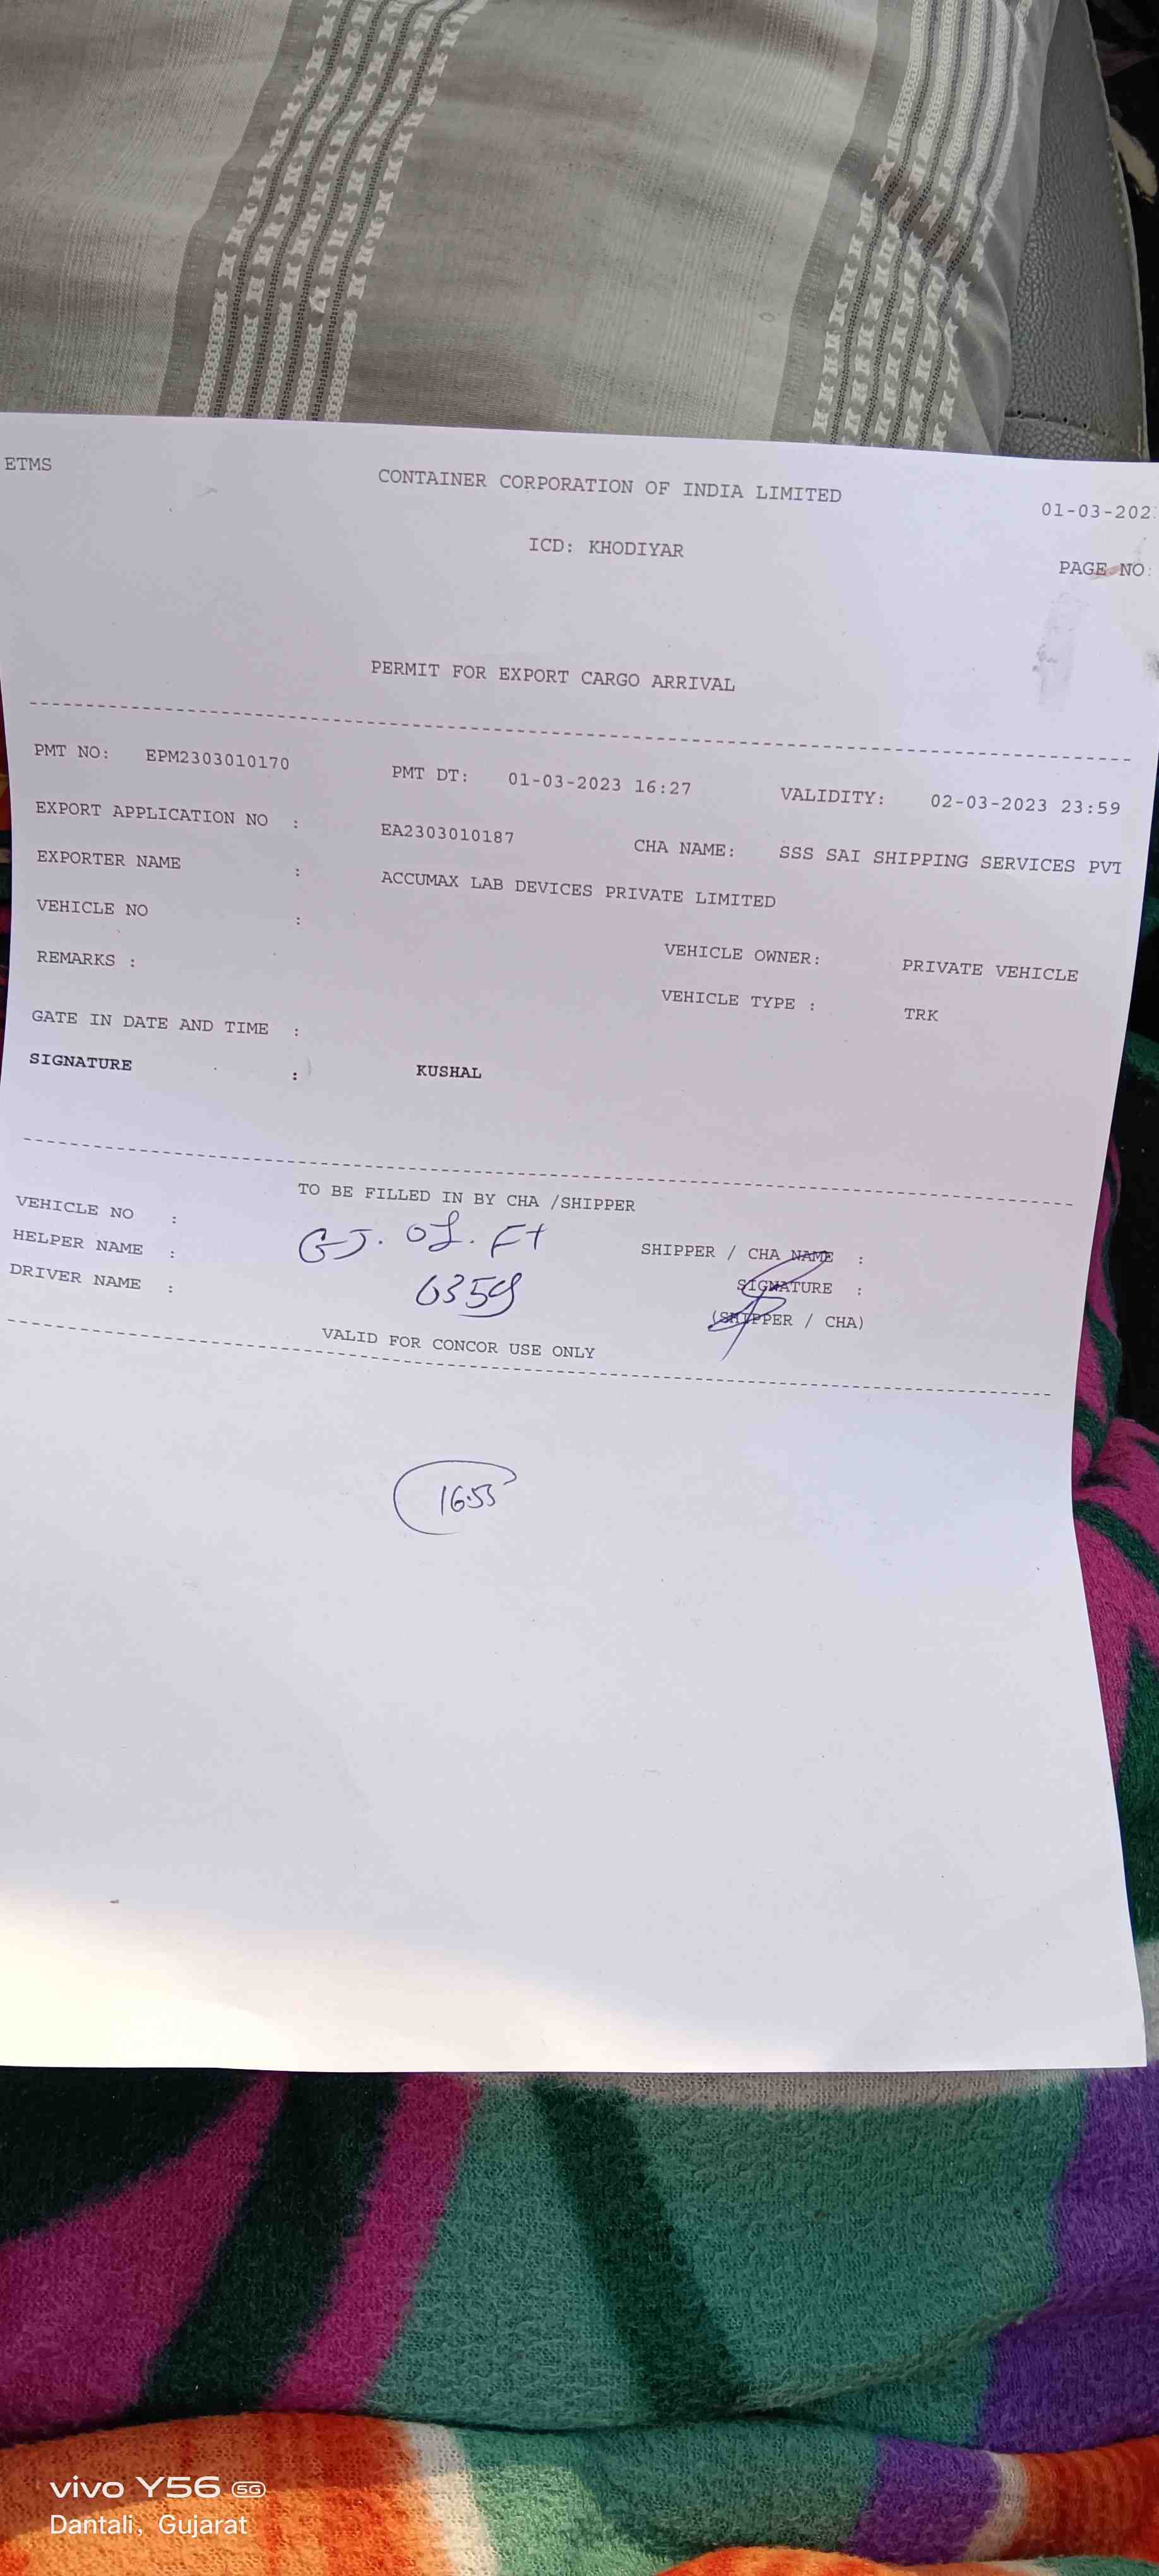 ETMS CONTAINER CORPORATION OF INDIA LIMITED 01-03-202
ICD: KHODIYAR PAGE NO:
PERMIT FOR EXPORT CARGO ARRIVAL
PMT NO: EPM2303010170 PMT DT: 01-03-2023 16:27 VALIDITY: 02-03-2023 23:59
EXPORT APPLICATION NO : EA2303010187 CHA NAME: SSS SAI SHIPPING SERVICES PVT
EXPORTER NAME : ACCUMAX LAB DEVICES PRIVATE LIMITED
VEHICLE NO : VEHICLE OWNER: PRIVATE VEHICLE
REMARKS : VEHICLE TYPE : TRK
GATE IN DATE AND TIME :
SIGNATURE : KUSHAL
TO BE FILLED IN BY CHA /SHIPPER
VEHICLE NO : GJ. SHIPPER / CHA NAME :
HELPER NAME : SIGNATURE :
DRIVER NAME : 6359 (SHIPPER / CHA)
VALID FOR CONCOR USE ONLY
1655
vivo Y56 5G
Dantali, Gujarat